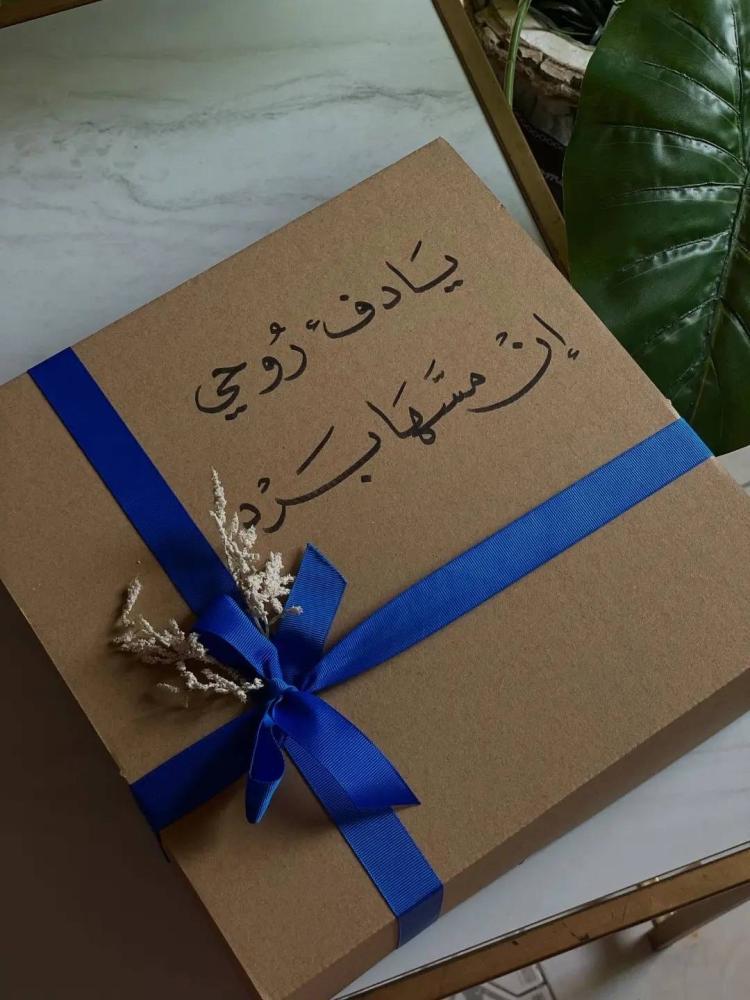 يَادفء رُوحي
إنْ مسَّهَا بَرْد